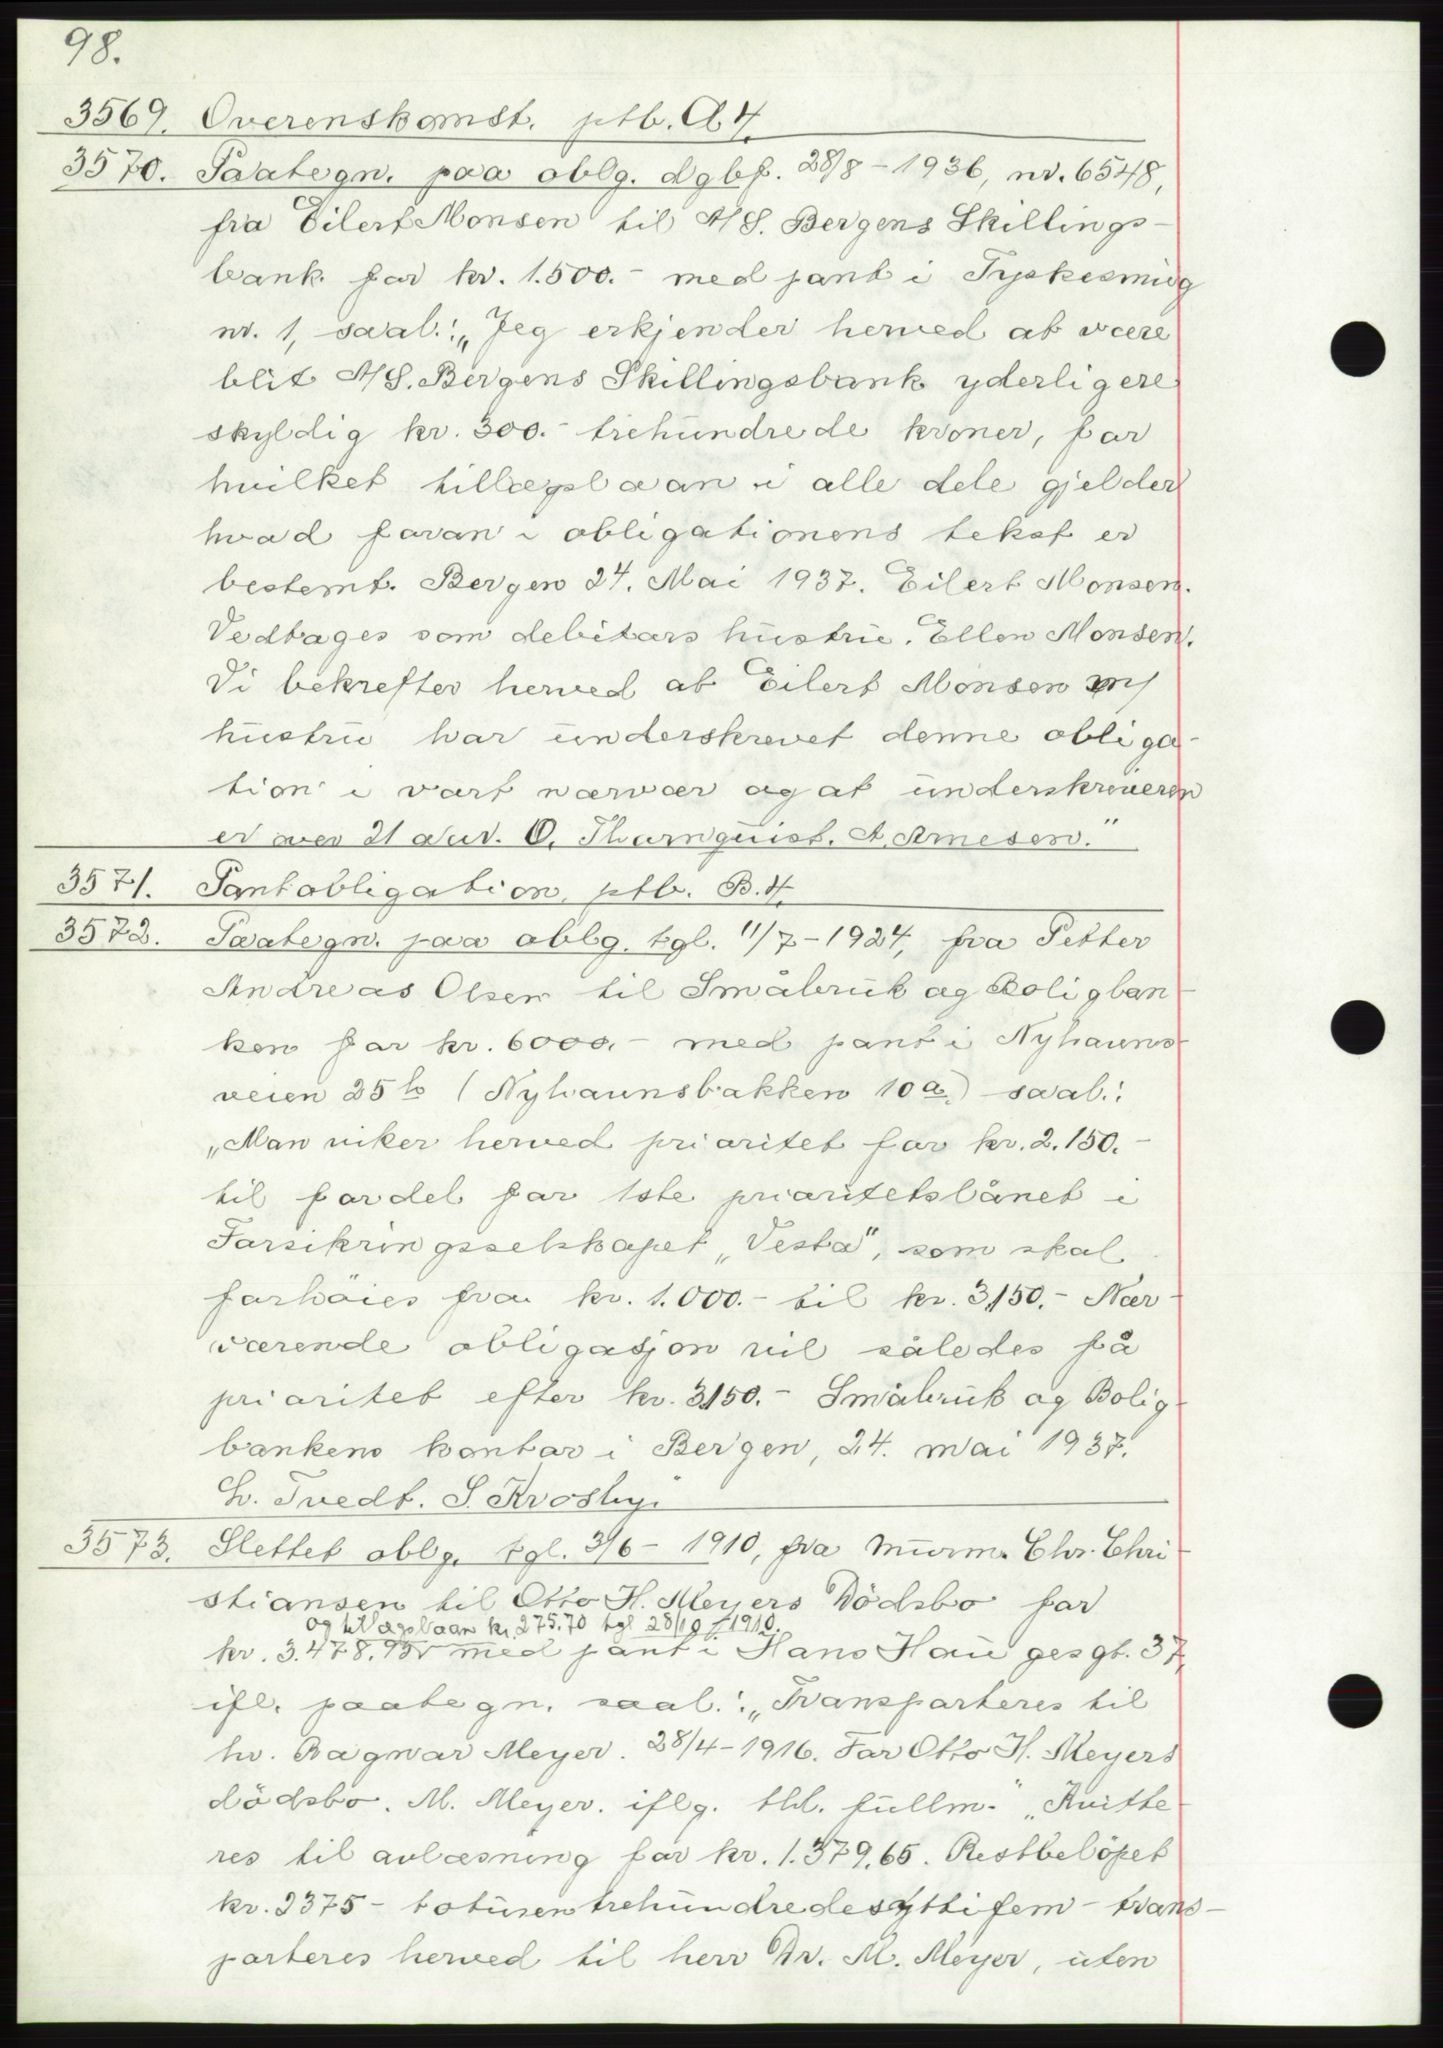 98.
3569. Overenskomst. ptb. A 4.
3570. Paategn. paa oblg. dgbf. 28/8 - 1936, nr. 6548,
fra Eilert Monsen til A/S. Bergens Skillings-
bank for kr. 1.500.- med pant i Tyskesmug
nr. 1, saal.: „Jeg erkjender herved at være
blit A/S. Bergens Skillingsbank yderligere
skyldig kr. 300.- trehundrede kroner, for
hvilket tillægslaan i alle dele gjelder
hvad foran i obligationens tekst er
bestemt. Bergen 24. Mai 1937. Eilert Monsen.
Vedtages som debitors hustru. Ellen Monsen.
Vi bekrefter herved at Eilert Monsen m/
hustru har underskrevet denne obliga-
tion i vort nærvær og at underskriveren
er over 21 aar. O. Thornquist. A. Arnesen."
3571. Pantobligation, ptb. B. 4.
3572. Paategn. paa oblg. tgl. 11/7 - 1924, fra Petter
Andreas Olsen til Småbruk og Boligban-
ken for kr. 6000.- med pant i Nyhavns-
veien 25 b (Nyhavnsbakken 10 a) saal.:
„Man viker herved prioritet for kr. 2.150.-
til fordel for 1ste prioritetslånet i
Forsikringsselskapet „Vesta", som skal
forhöies fra kr. 1.000.- til kr. 3.150.- Nær-
værende obligasjon vil således få
prioritet efter kr. 3.150.- Småbruk og Bolig-
bankens kontor i Bergen, 24. mai 1937.
L. Tvedt. S. Krosby."
3573. Slettet oblg. tgl. 3/6 - 1910, fra Murm. Chr. Chri-
stiansen til Otto H. Meyers Dödsbo for
og tillægslaan kr. 275.70 tgl 28/10 - 1910.
kr. 3.478.95 med pant i Hans Hau gesgt. 37,
ifl. paategn. saal.: „Transporteres til
hr. Ragnar Meyer. 28/4 - 1916. For Otto H. Meyers
dödsbo. M. Meyer. iflg. thl. fullm." „Kvitte-
res til avlæsning for kr. 1.379.65. Restbelöpet
kr. 2375 - totusentrehundredesyttifem - trans-
porteres herved til herr Dr. M. Meyer, uten